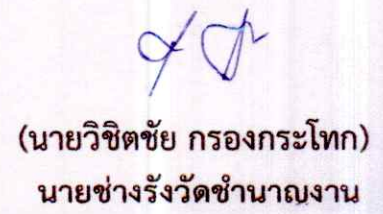 (นายวิชิตชัย กรองกระโทก)
นายช่างรังวัดชำนาญงาน